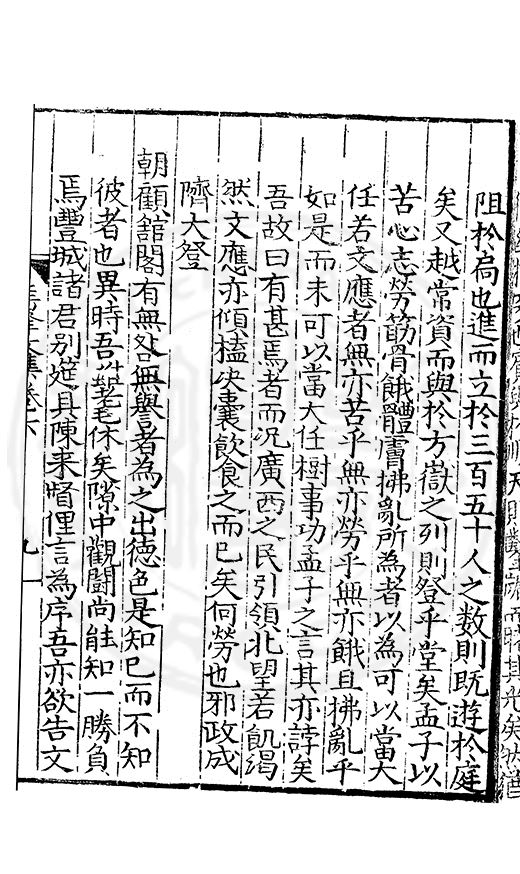 阻於扃也進而立於三百五十人之数則旣遊於庭
矣又越常資而與於方嶽之列則登乎堂矣孟子以
苦心志勞筋骨餓體膚拂亂所為者以為可以當大
任若文應者無亦苦乎無亦勞乎無亦餓且拂亂乎
如是而未可以當大任樹事功孟子之言其亦誖矣
吾故曰有甚焉者而况廣西之民引領北望若飢渴
然文應亦傾榼決囊飲食之而已矣何勞也邪政成
隮大登
朝顧舘閣有無咎無譽者為之出德色是知已而不知
彼者也異時吾耄休矣隙中觀鬪尚能知一勝負
焉豐城諸君別筵具陳来
俚言為序吾亦欲告文
卷之六
九